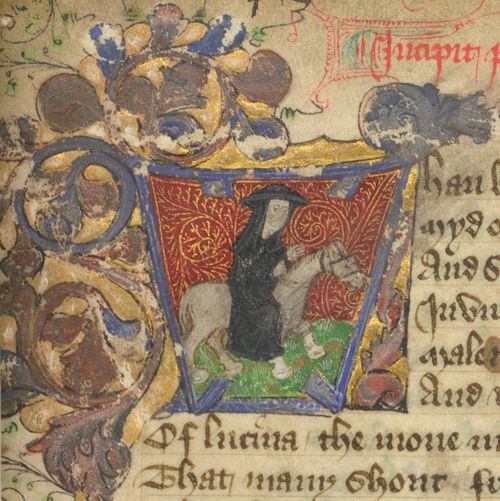 Incipit p
han b
Myd o
And S
In vir
Male
And w
Of lucina the mone m
That many shour f